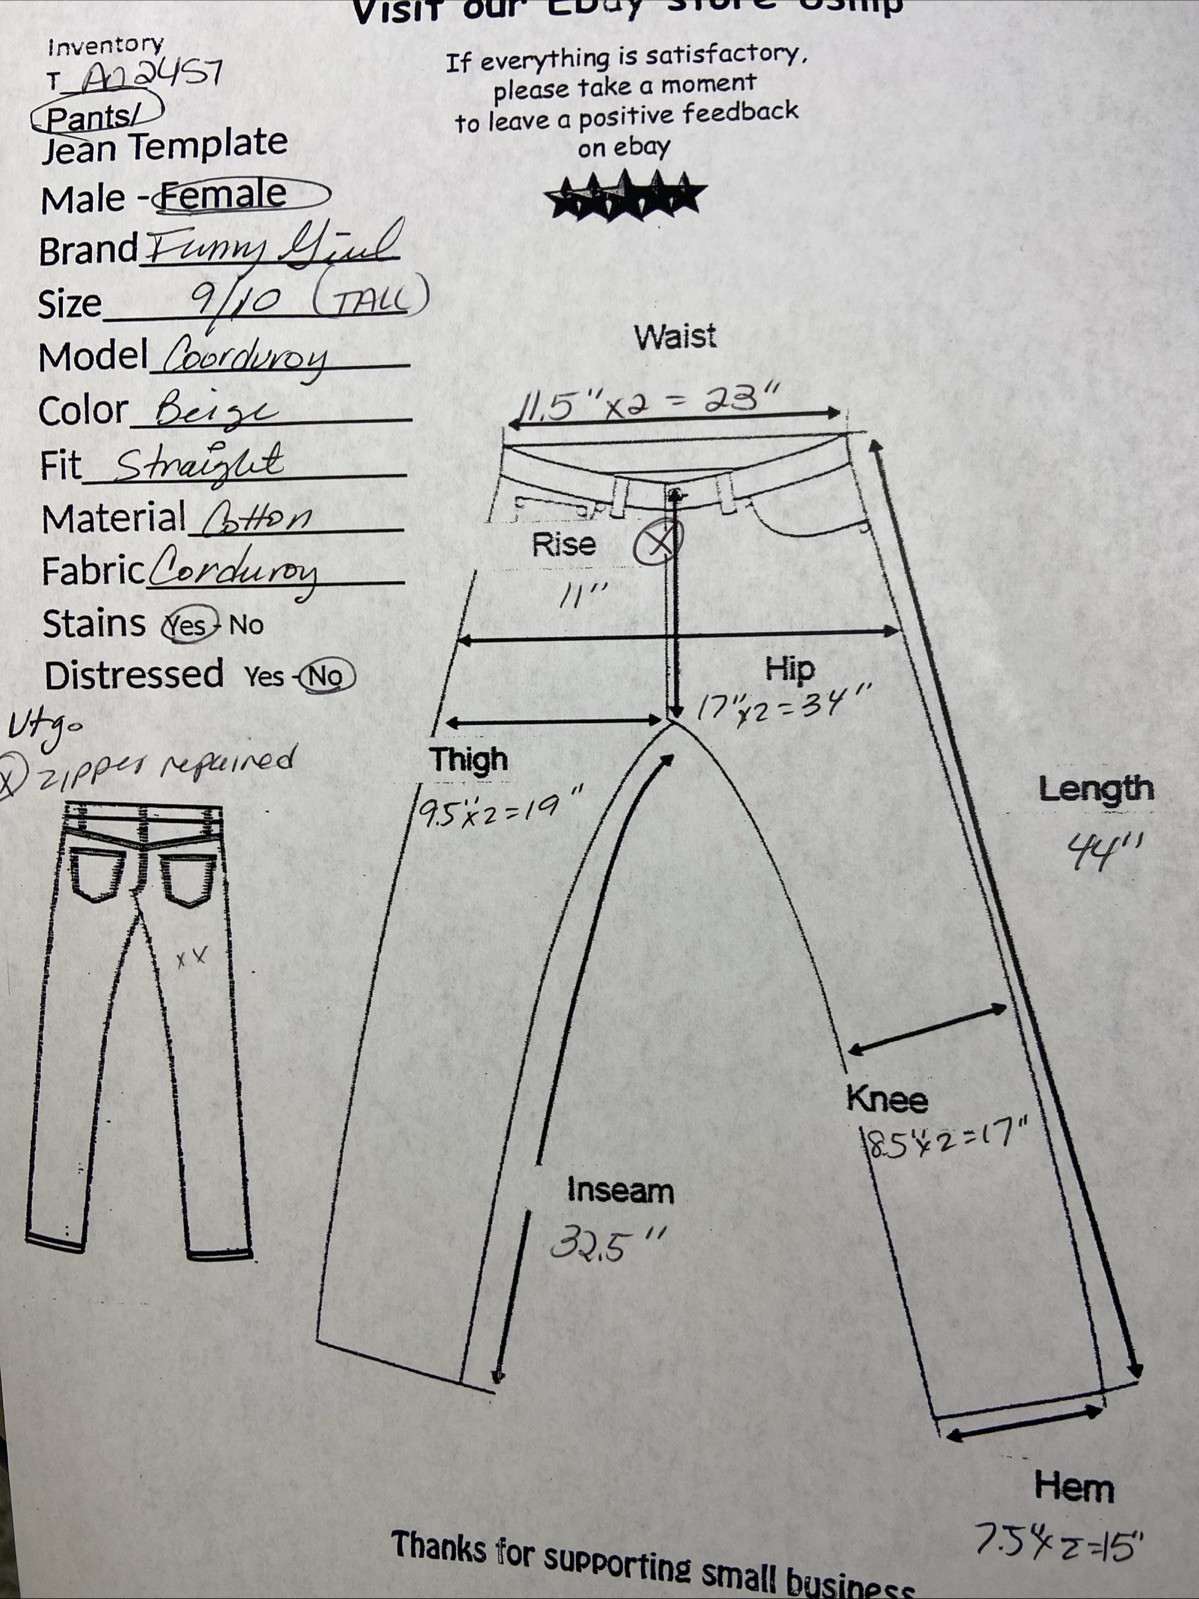 Visit our Ebay Store
Inventory
T_An2457
Pants/
Jean Template
Male - Female
Brand Funny Girl
Size 9/10 (TALL)
Model Coorduroy
Color Beige
Fit Straight
Material Cotton
Fabric Corduroy
Stains Yes - No
Distressed Yes - No
Vtg.
X zipper repaired
x x
If everything is satisfactory,
please take a moment
to leave a positive feedback
on ebay
Waist
11.5" x2 = 23"
Rise
X
11"
Hip
17" x2 = 34"
Thigh
9.5" x2 = 19"
Length
44"
Knee
8.5" x2 = 17"
Inseam
32.5"
Hem
7.5" x 2 = 15"
Thanks for supporting small business